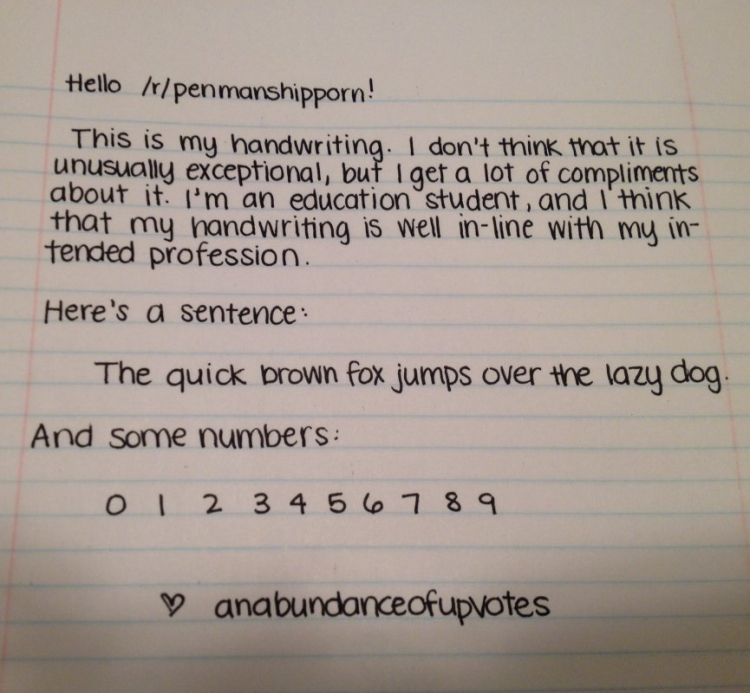 Hello /r/penmanshipporn!
This is my handwriting. I don't think that it is
unusually exceptional, but I get a lot of compliments
about it. I'm an education student, and I think
that my handwriting is well in-line with my in-
tended profession.
Here's a sentence:
The quick brown fox jumps over the lazy dog.
And some numbers:
0 1 2 3 4 5 6 7 8 9
♡ anabundanceofupvotes